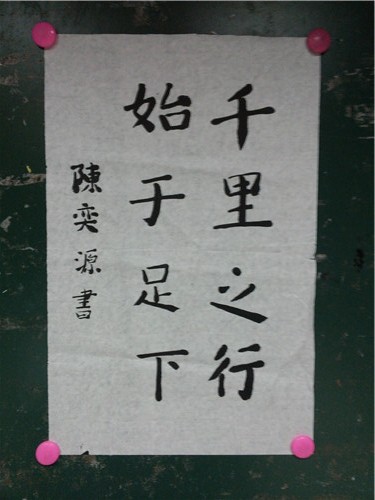 千里之行
始于足下
陳奕源書